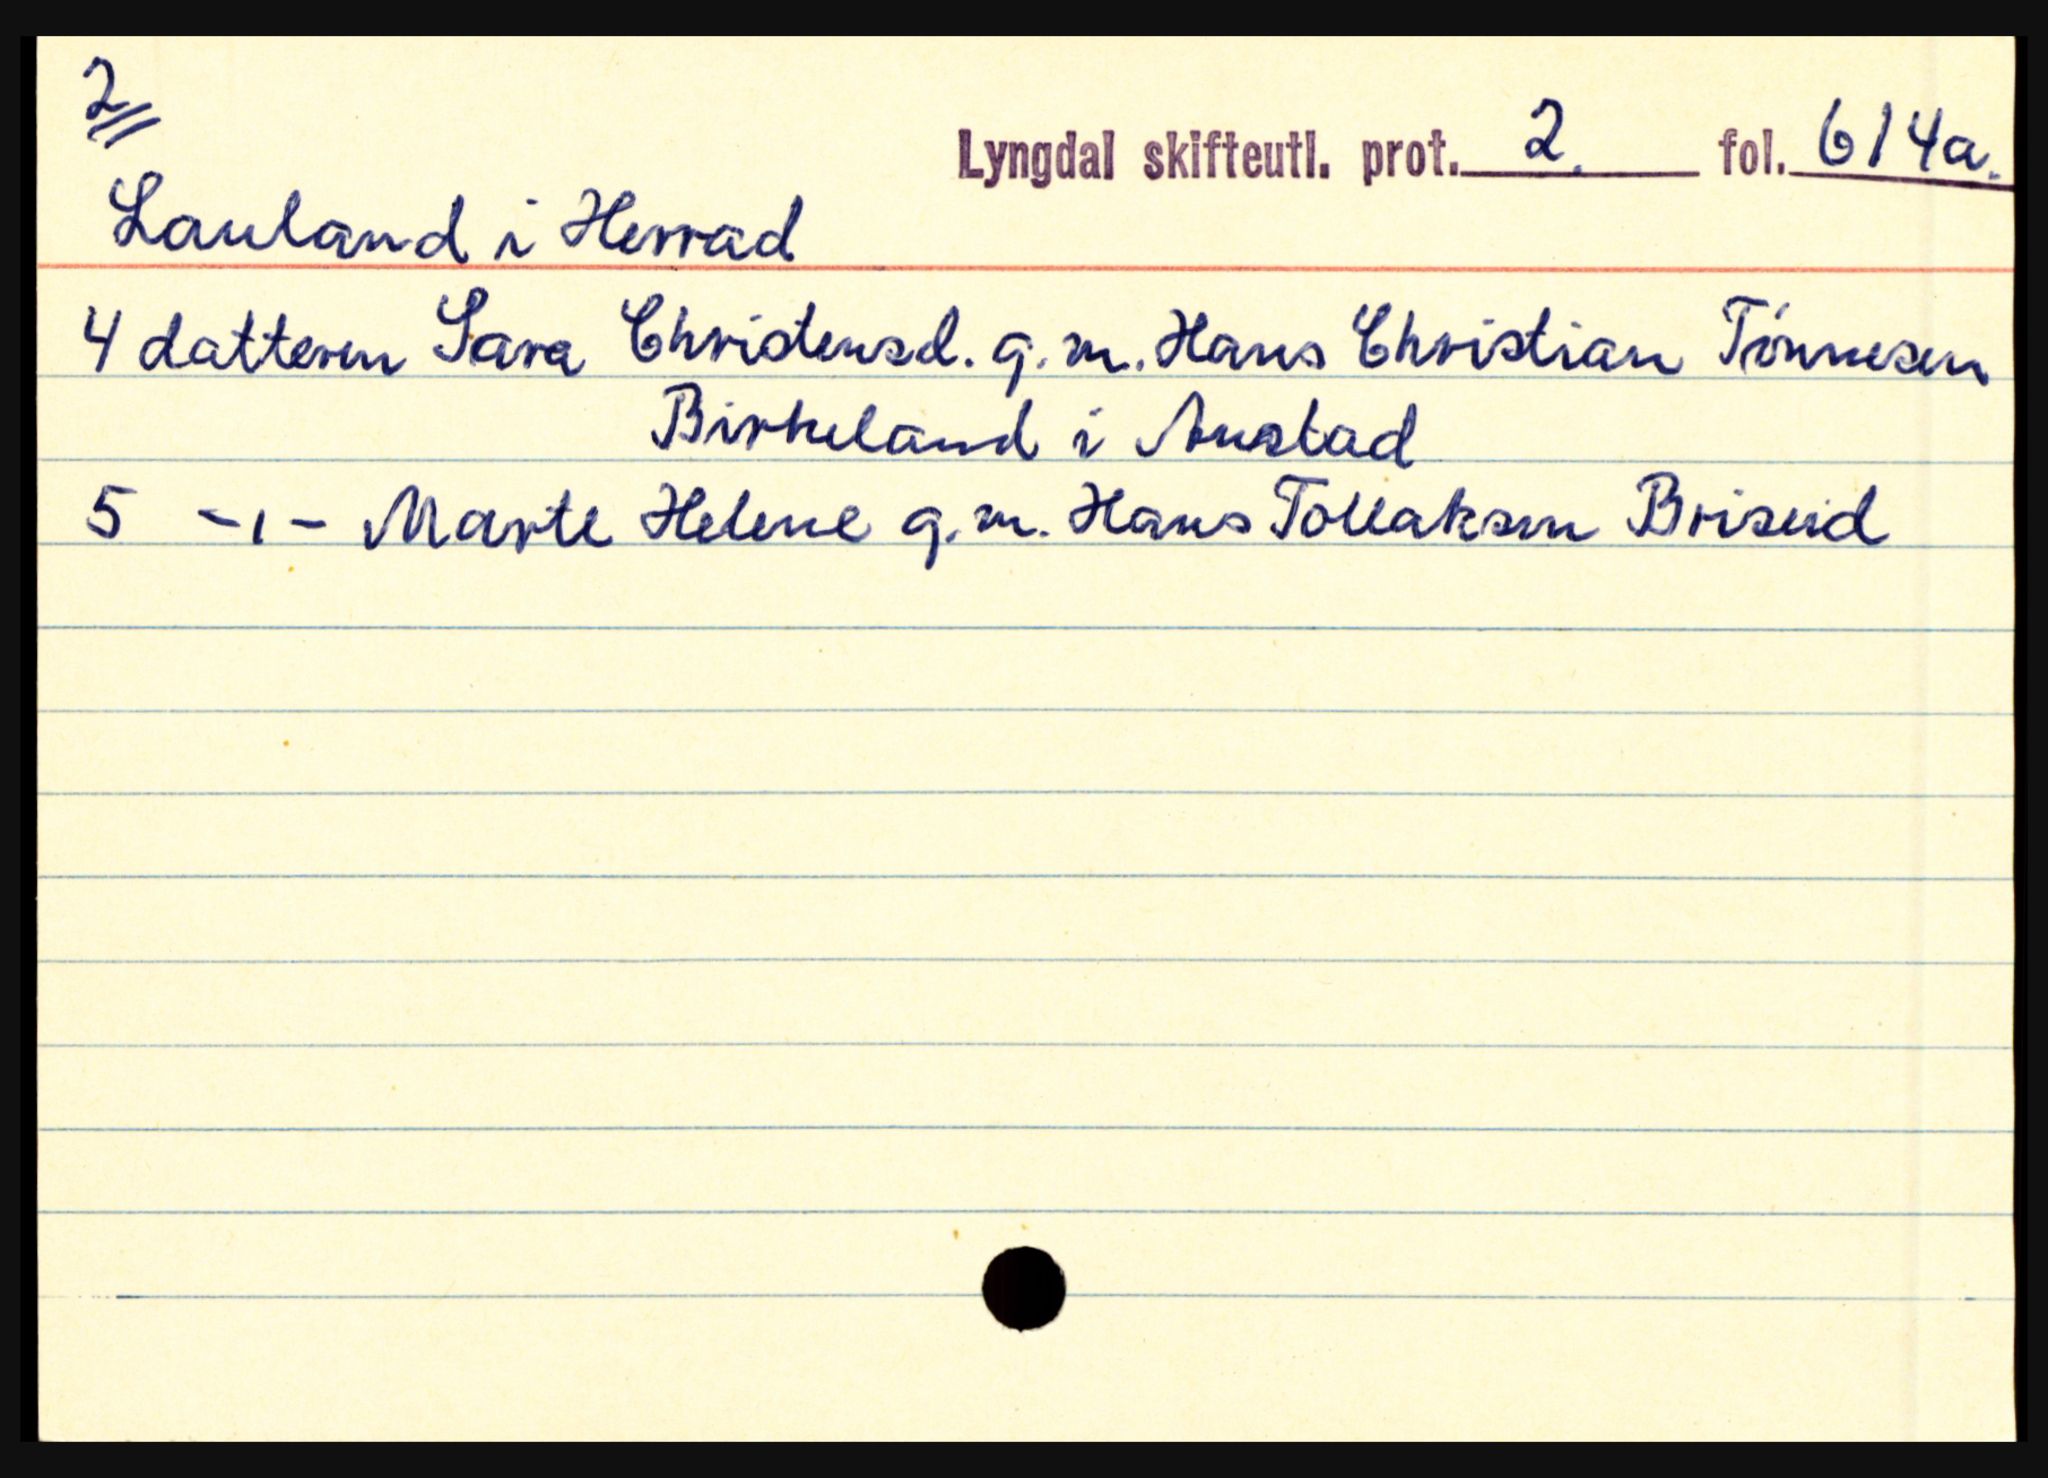 2
Lyngdal skifteutl. prot. 2. fol. 614a.
Lauland i Herrad
4 datteren Sara Christensd. g. m. Hans Christian Tönnesen
Birkeland i Austad
5 -ı- Marte Helene g. m. Hans Tollaksen Briseid